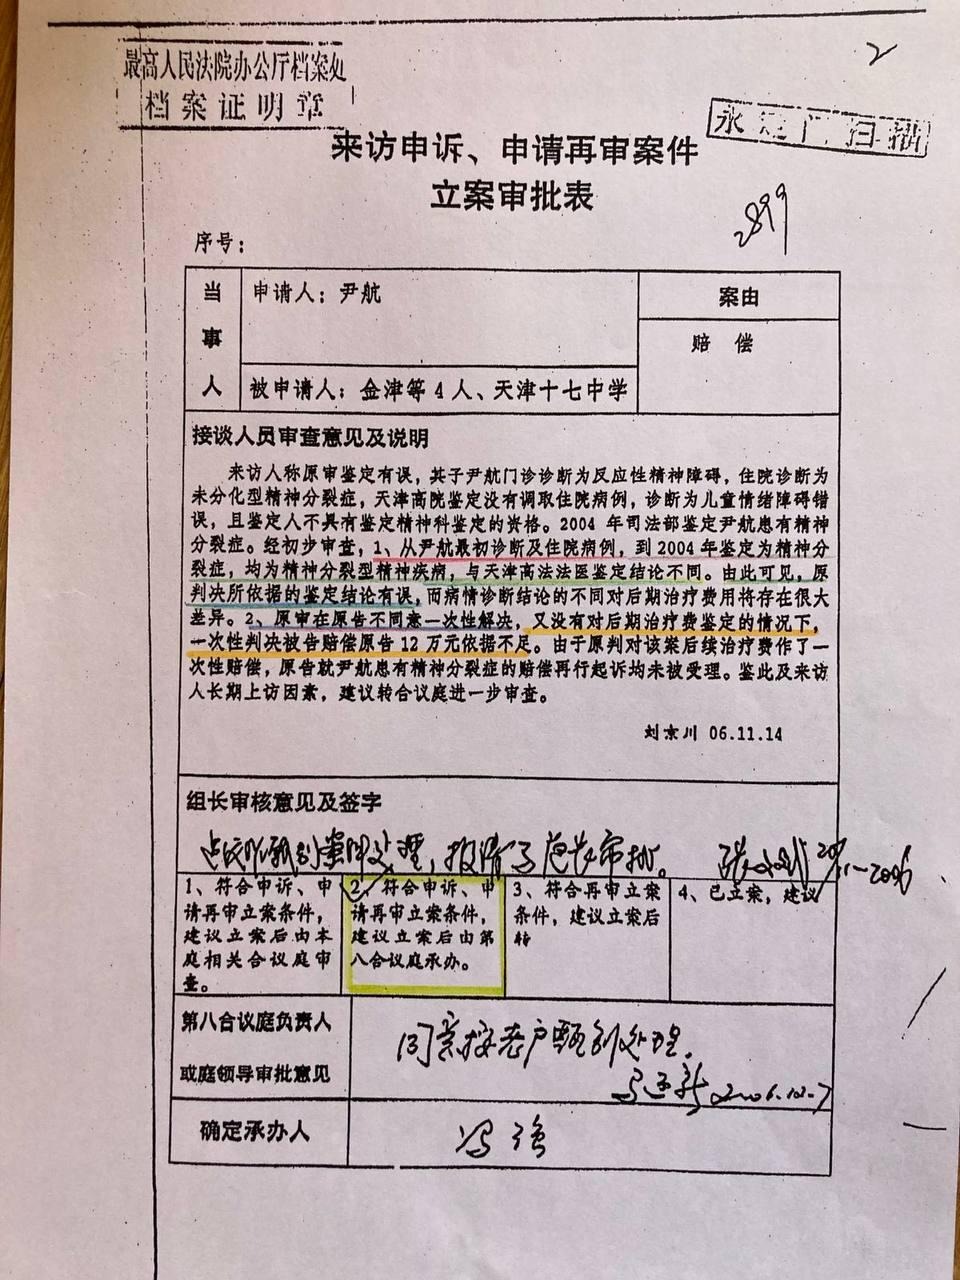 2
最高人民法院办公厅档案处
档案证明章
永定门扫描
来访申诉、申请再审案件
立案审批表
2899
序号：
当事人
申请人：尹航
案由
赔 偿
被申请人：金津等4人、天津十七中学
接谈人员审查意见及说明
来访人称原审鉴定有误，其子尹航门诊诊断为反应性精神障碍，住院诊断为
未分化型精神分裂症，天津高院鉴定没有调取住院病例，诊断为儿童情绪障碍错
误，且鉴定人不具有鉴定精神科鉴定的资格。2004年司法部鉴定尹航患有精神
分裂症。经初步审查，1、从尹航最初诊断及住院病例，到2004年鉴定为精神分
裂症，均为精神分裂型精神疾病，与天津高法法医鉴定结论不同。由此可见，原
判决所依据的鉴定结论有误，而病情诊断结论的不同对后期治疗费用将存在很大
差异。2、原审在原告不同意一次性解决，又没有对后期治疗费鉴定的情况下，
一次性判决被告赔偿原告12万元依据不足。由于原判对该案后续治疗费作了一
次性赔偿，原告就尹航患有精神分裂症的赔偿再行起诉均未被受理。鉴此及来访
人长期上访因素，建议转合议庭进一步审查。
刘京川 06.11.14
组长审核意见及签字
案件处理，报请
审批。
2006
1、符合申诉、申
请再审立案条件，
建议立案后由本
庭相关合议庭审
查。
2、符合申诉、申
请再审立案条件，
建议立案后由第
八合议庭承办。
3、符合再审立案
条件，建议立案后
转
4、已立案，建议
第八合议庭负责人
或庭领导审批意见
同意按老户甄别处理。
2006.12.7
确定承办人
冯强